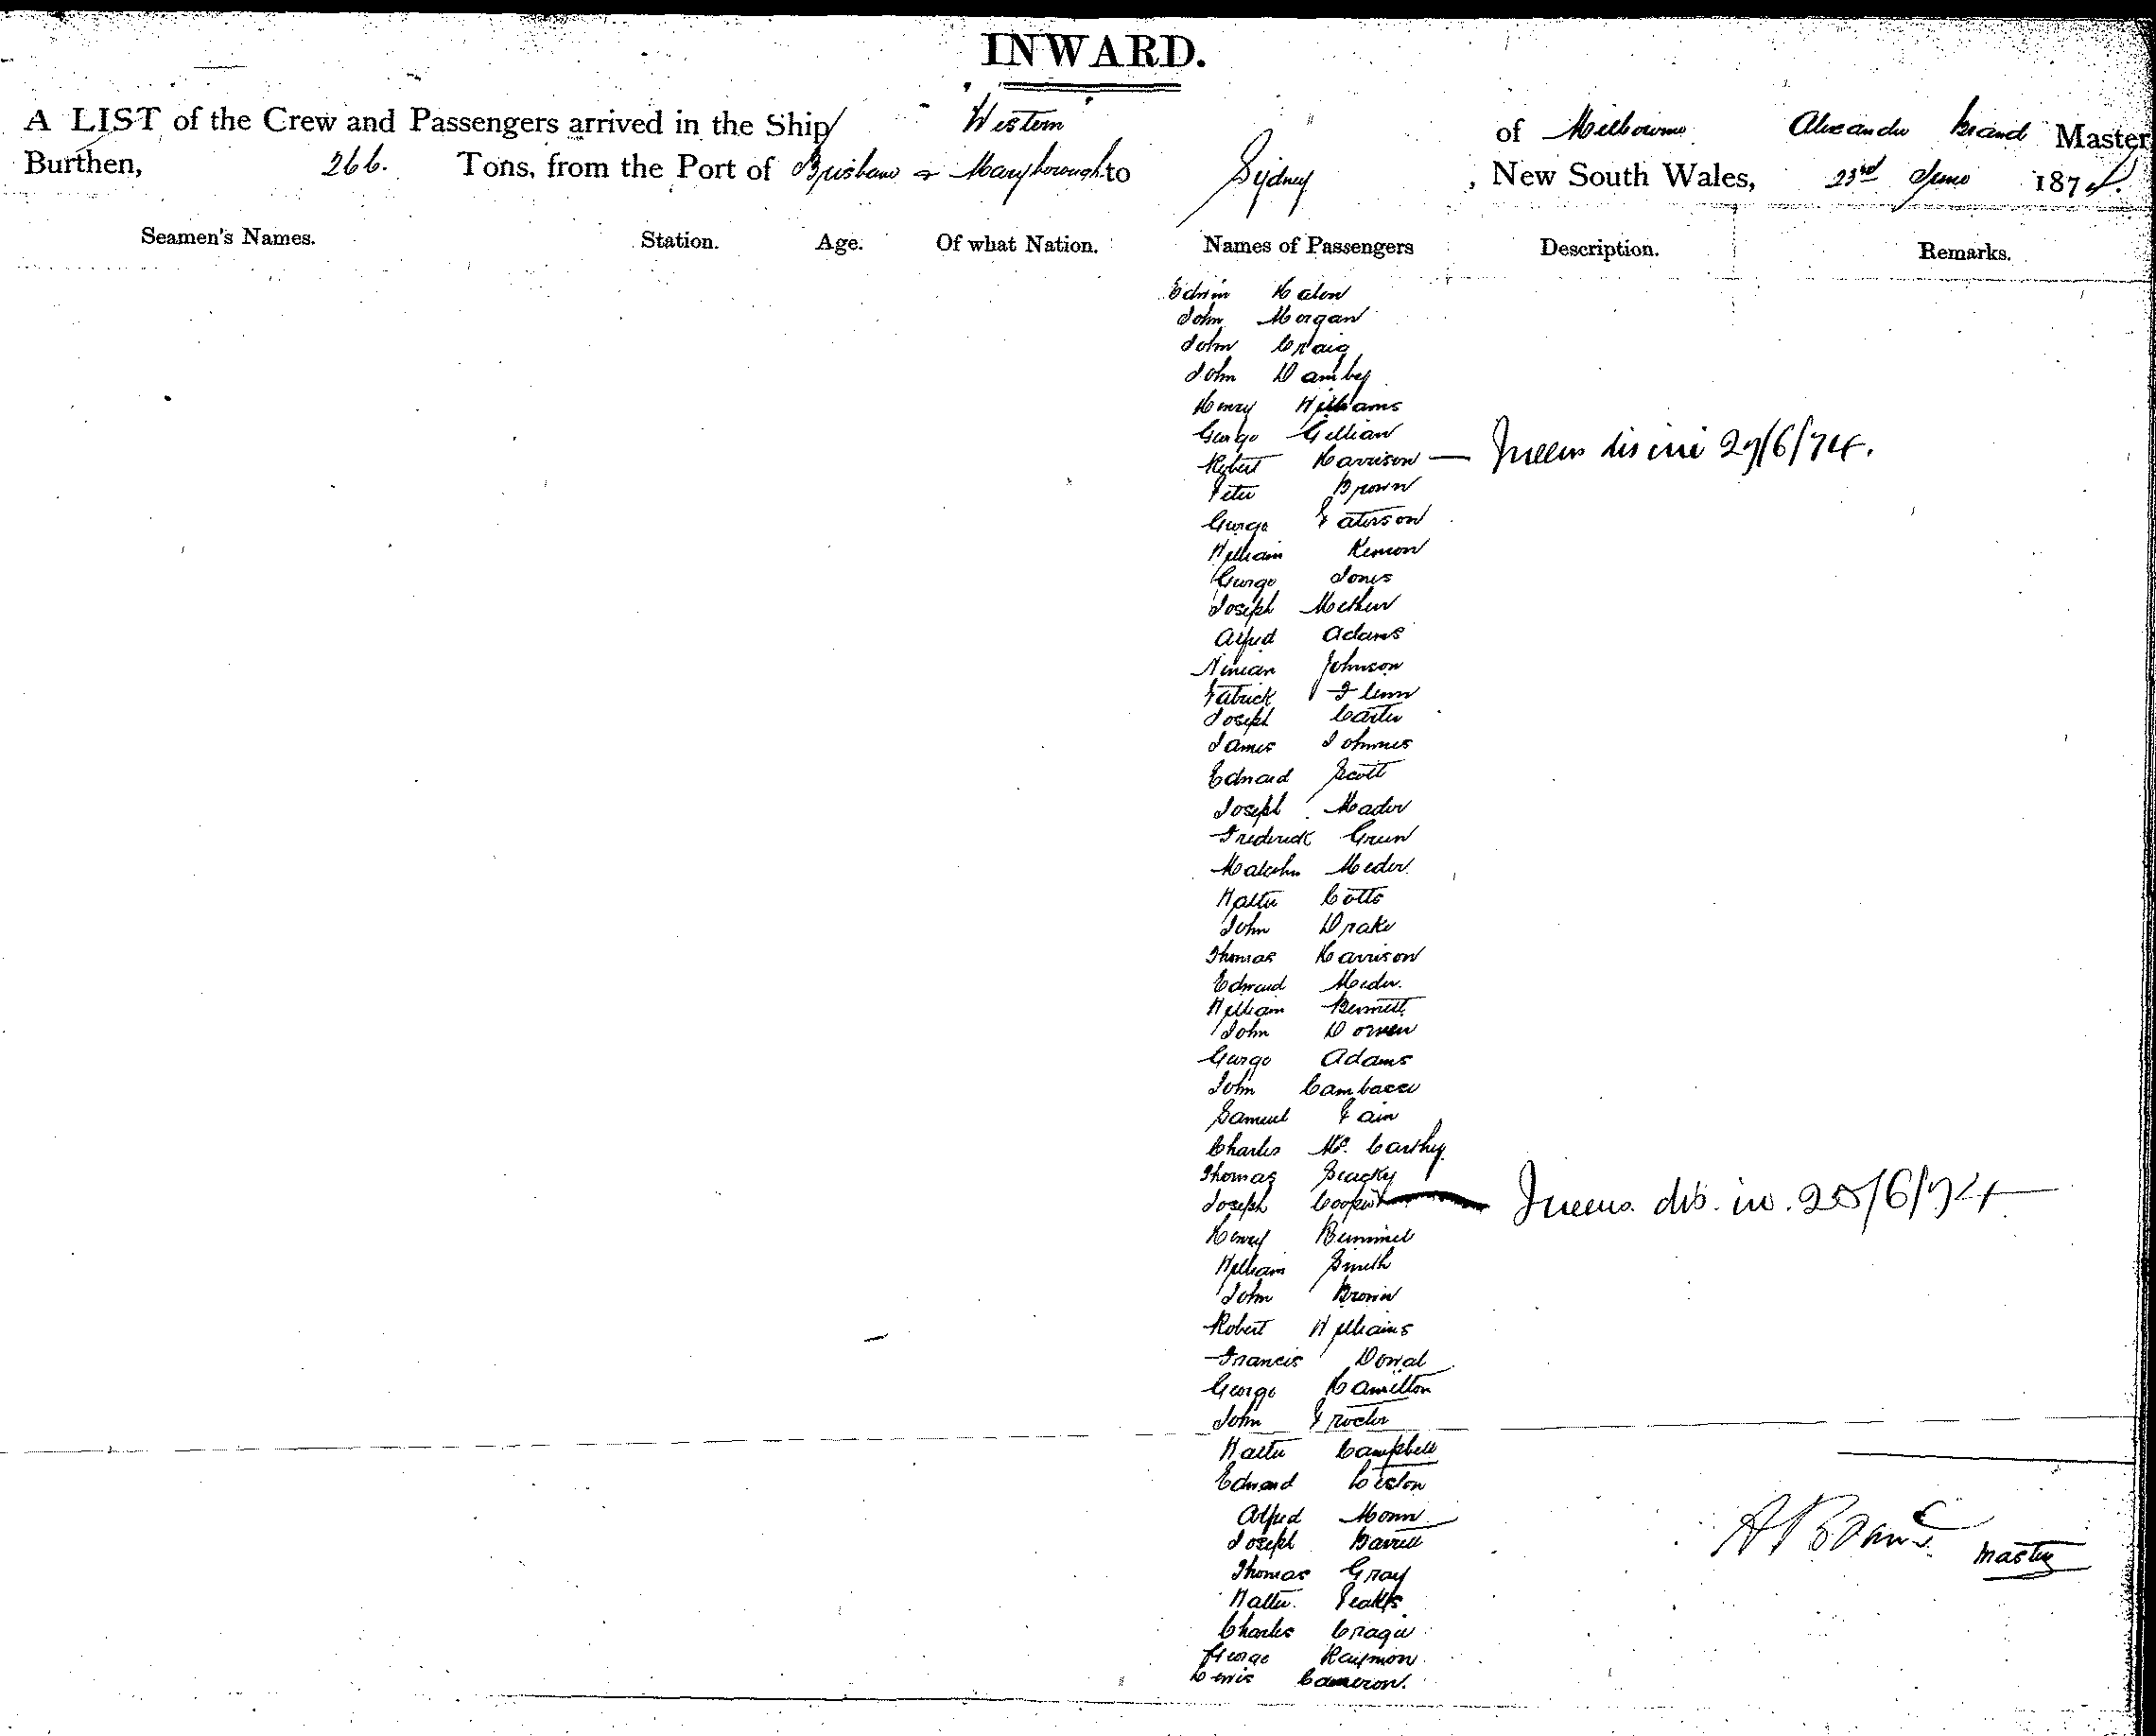 INWARD.
A LIST of the Crew and Passengers arrived in the Ship Western of Melbourne Alexander Brand Master
Burthen, 266. Tons, from the Port of Brisbane & Maryborough to Sydney, New South Wales, 23rd June 1874.
Seamen's Names. Station. Age. Of what Nation. Names of Passengers Description. Remarks.
Edwin
John Morgan
John Craig
John Damby
Henry Williams
George Gillian
Robert Harrison — 29/6/74.
Peter Brown
George Paterson
William
George Jones
Joseph
Alfred Adams
Ninian Johnson
Patrick Flinn
Joseph Carter
James
Edward Scott
Joseph Mader
Frederick Green
Malcolm Meder
Walter Cotts
John Drake
Thomas Harrison
Edward Meder.
William Bennett
John
George Adams
John
Samuel Pain
Charles Mc. Carthy
Thomas
Joseph Cooper 25/6/74
Henry
William Smith
John Brown
Robert Williams
Francis
George Hamilton
John Proctor
Walter Campbell
Edward
Alfred
Joseph Barrett
Thomas Gray
Walter
Charles
George Raymon
Lewis Cameron.
A Brand Master